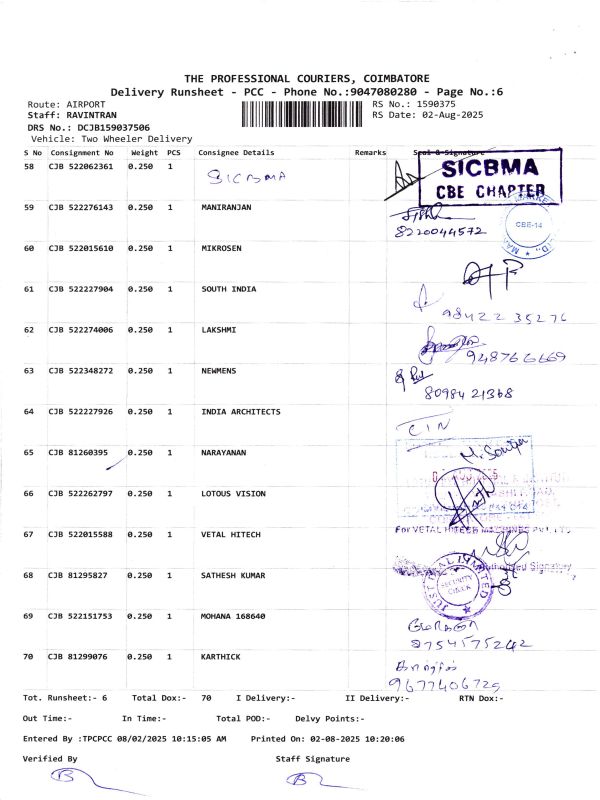 THE PROFESSIONAL COURIERS, COIMBATORE
Delivery Runsheet - PCC - Phone No.:9047080280 - Page No.:6
Route: AIRPORT RS No.: 1590375
Staff: RAVINTRAN RS Date: 02-Aug-2025
DRS No.: DCJB159037506
Vehicle: Two Wheeler Delivery
S No Consignment No Weight PCS Consignee Details Remarks Seal & Signature
58 CJB 522062361 0.250 1 SICBMA SICBMA
CBE CHAPTER
59 CJB 522276143 0.250 1 MANIRANJAN
8220044572 CBE-14
60 CJB 522015610 0.250 1 MIKROSEN
61 CJB 522227904 0.250 1 SOUTH INDIA
98422 35276
62 CJB 522274006 0.250 1 LAKSHMI
948766669
63 CJB 522348272 0.250 1 NEWMENS
80984 21368
64 CJB 522227926 0.250 1 INDIA ARCHITECTS
65 CJB 81260395 0.250 1 NARAYANAN
66 CJB 522262797 0.250 1 LOTOUS VISION
67 CJB 522015588 0.250 1 VETAL HITECH For VETAL HITECH MACHINES PVT LTD
Authorised Signatory
68 CJB 81295827 0.250 1 SATHESH KUMAR JUST DIAL LIMITED
SECURITY
CHECK
69 CJB 522151753 0.250 1 MOHANA 168640
9754575242
70 CJB 81299076 0.250 1 KARTHICK
9677406725
Tot. Runsheet:- 6 Total Dox:- 70 I Delivery:- II Delivery:- RTN Dox:-
Out Time:- In Time:- Total POD:- Delvy Points:-
Entered By :TPCPCC 08/02/2025 10:15:05 AM Printed On: 02-08-2025 10:20:06
Verified By Staff Signature